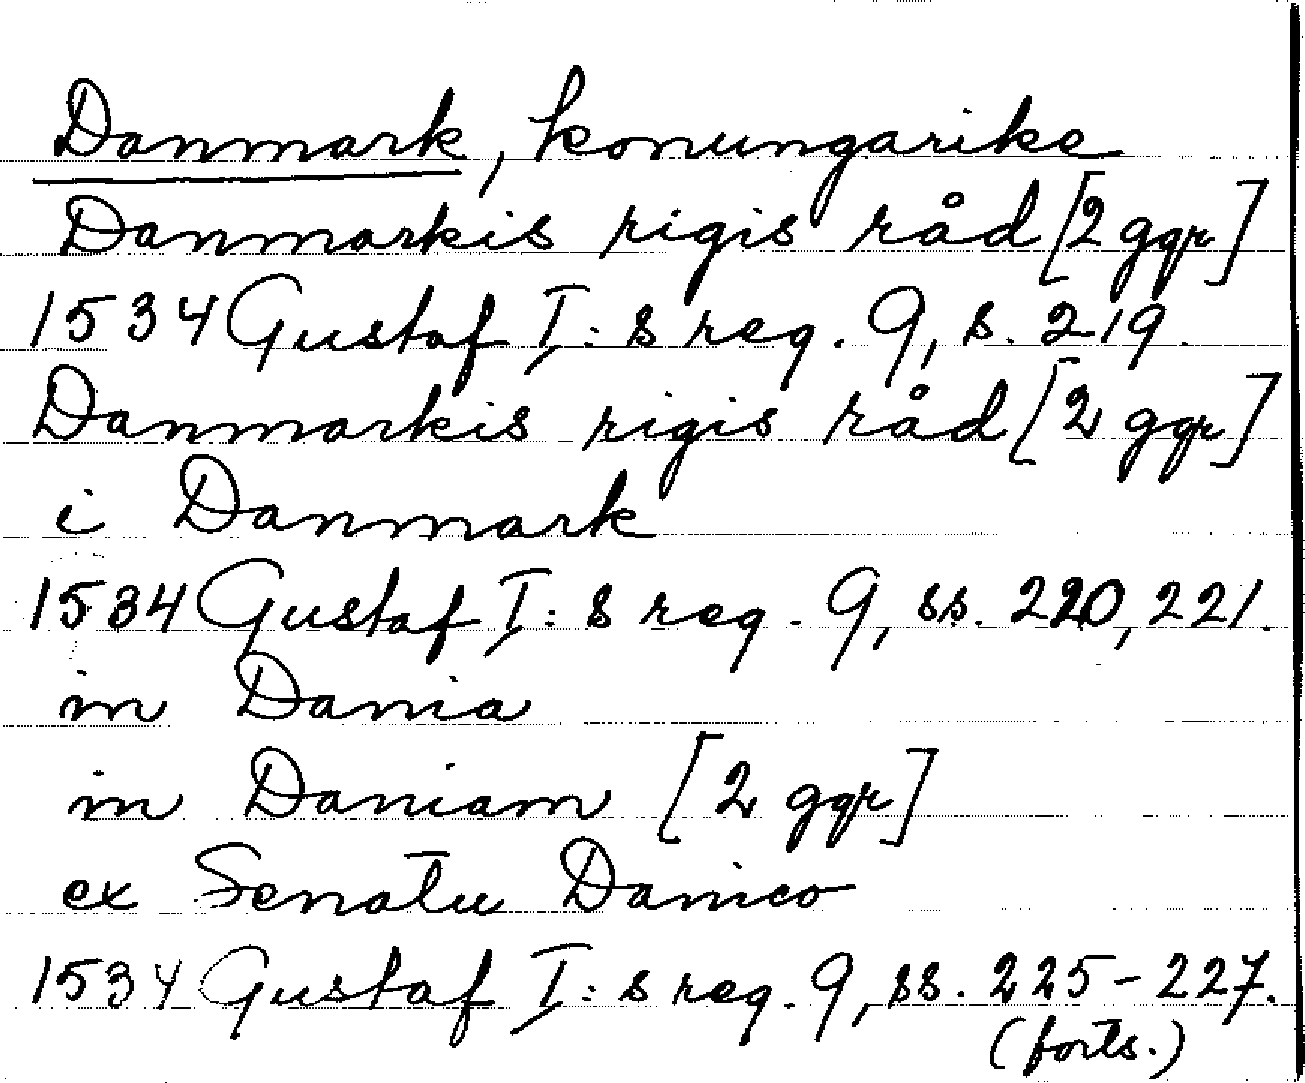 Danmark, konungarike
Danmarkis rigis råd [2 ggr]
1534 Gustaf I:s reg. 9, s. 219.
Danmarkis rigis råd [2 ggr]
i Danmark
1534 Gustaf I:s reg. 9, ss. 220, 221.
in Dania
in Daniam [2 ggr]
ex Senatu Danico
1534 Gustaf I:s reg. 9, ss. 225-227.
(forts.)